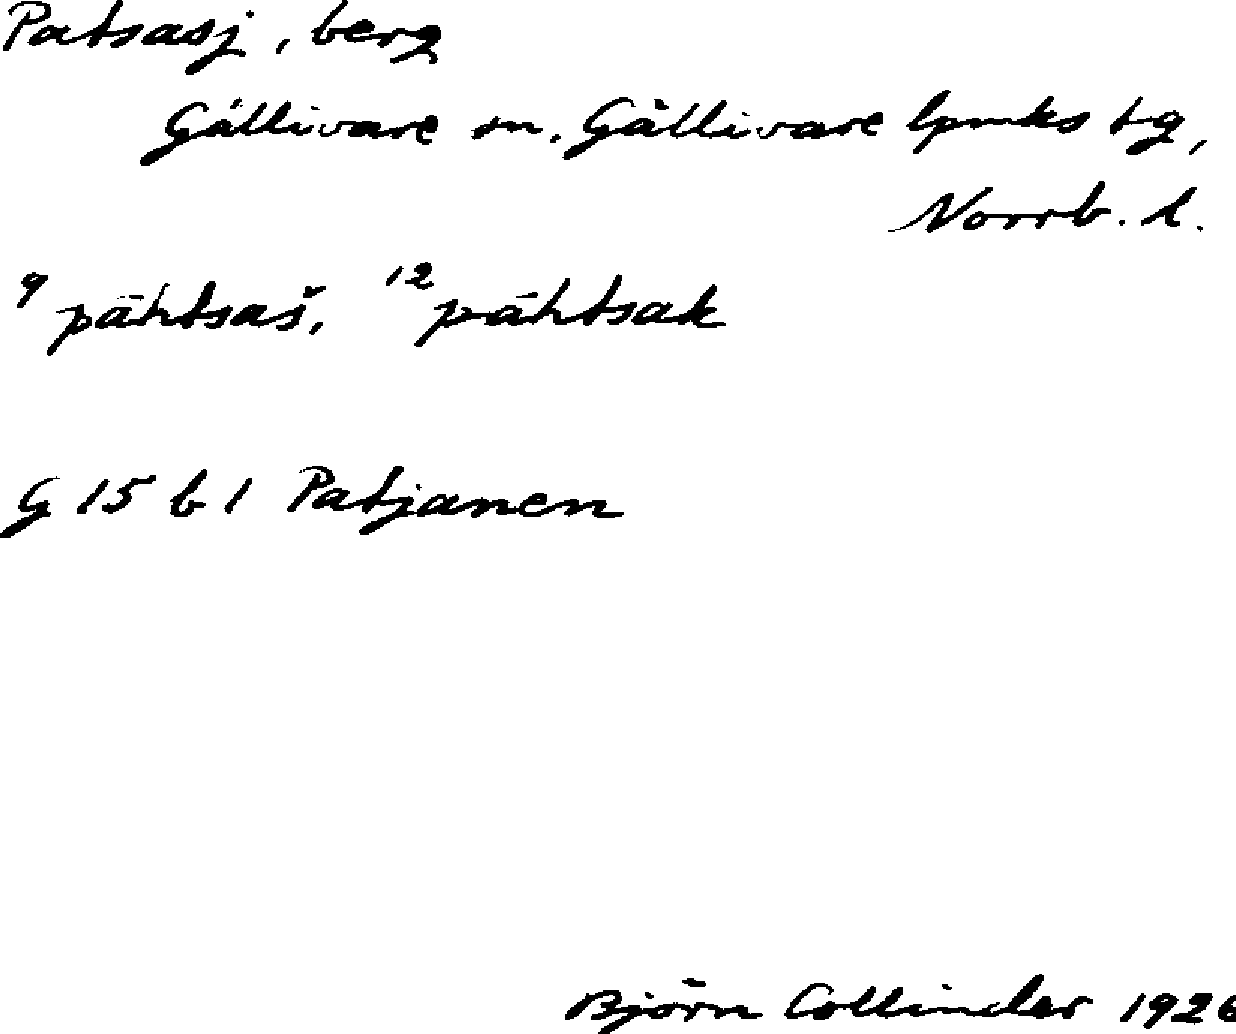 Patsasj, berg
Gällivare sn, Gällivare lpmks tg,
Norrb. l.
9 pāhtsaš, 12 pāhtsak
G 15 b 1 Patjanen
Björn Collinder 1926